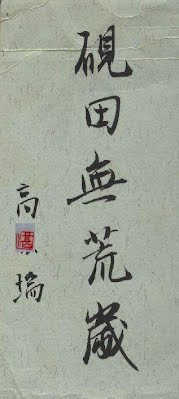 硯田無荒歲
高